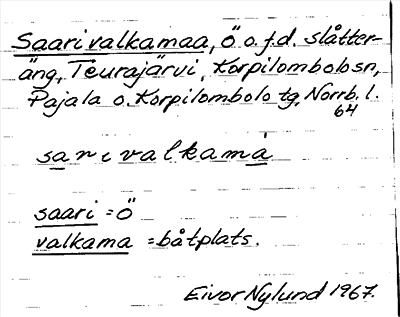 Saarivalkamaa, ö o. f.d. slåtter-
äng, Teurajärvi, Korpilombolo sn,
Pajala o. Korpilombolo tg, Norrb. l.
64
sarivalkamà
saari = ö
valkama = båtplats.
Eivor Nylund 1967.